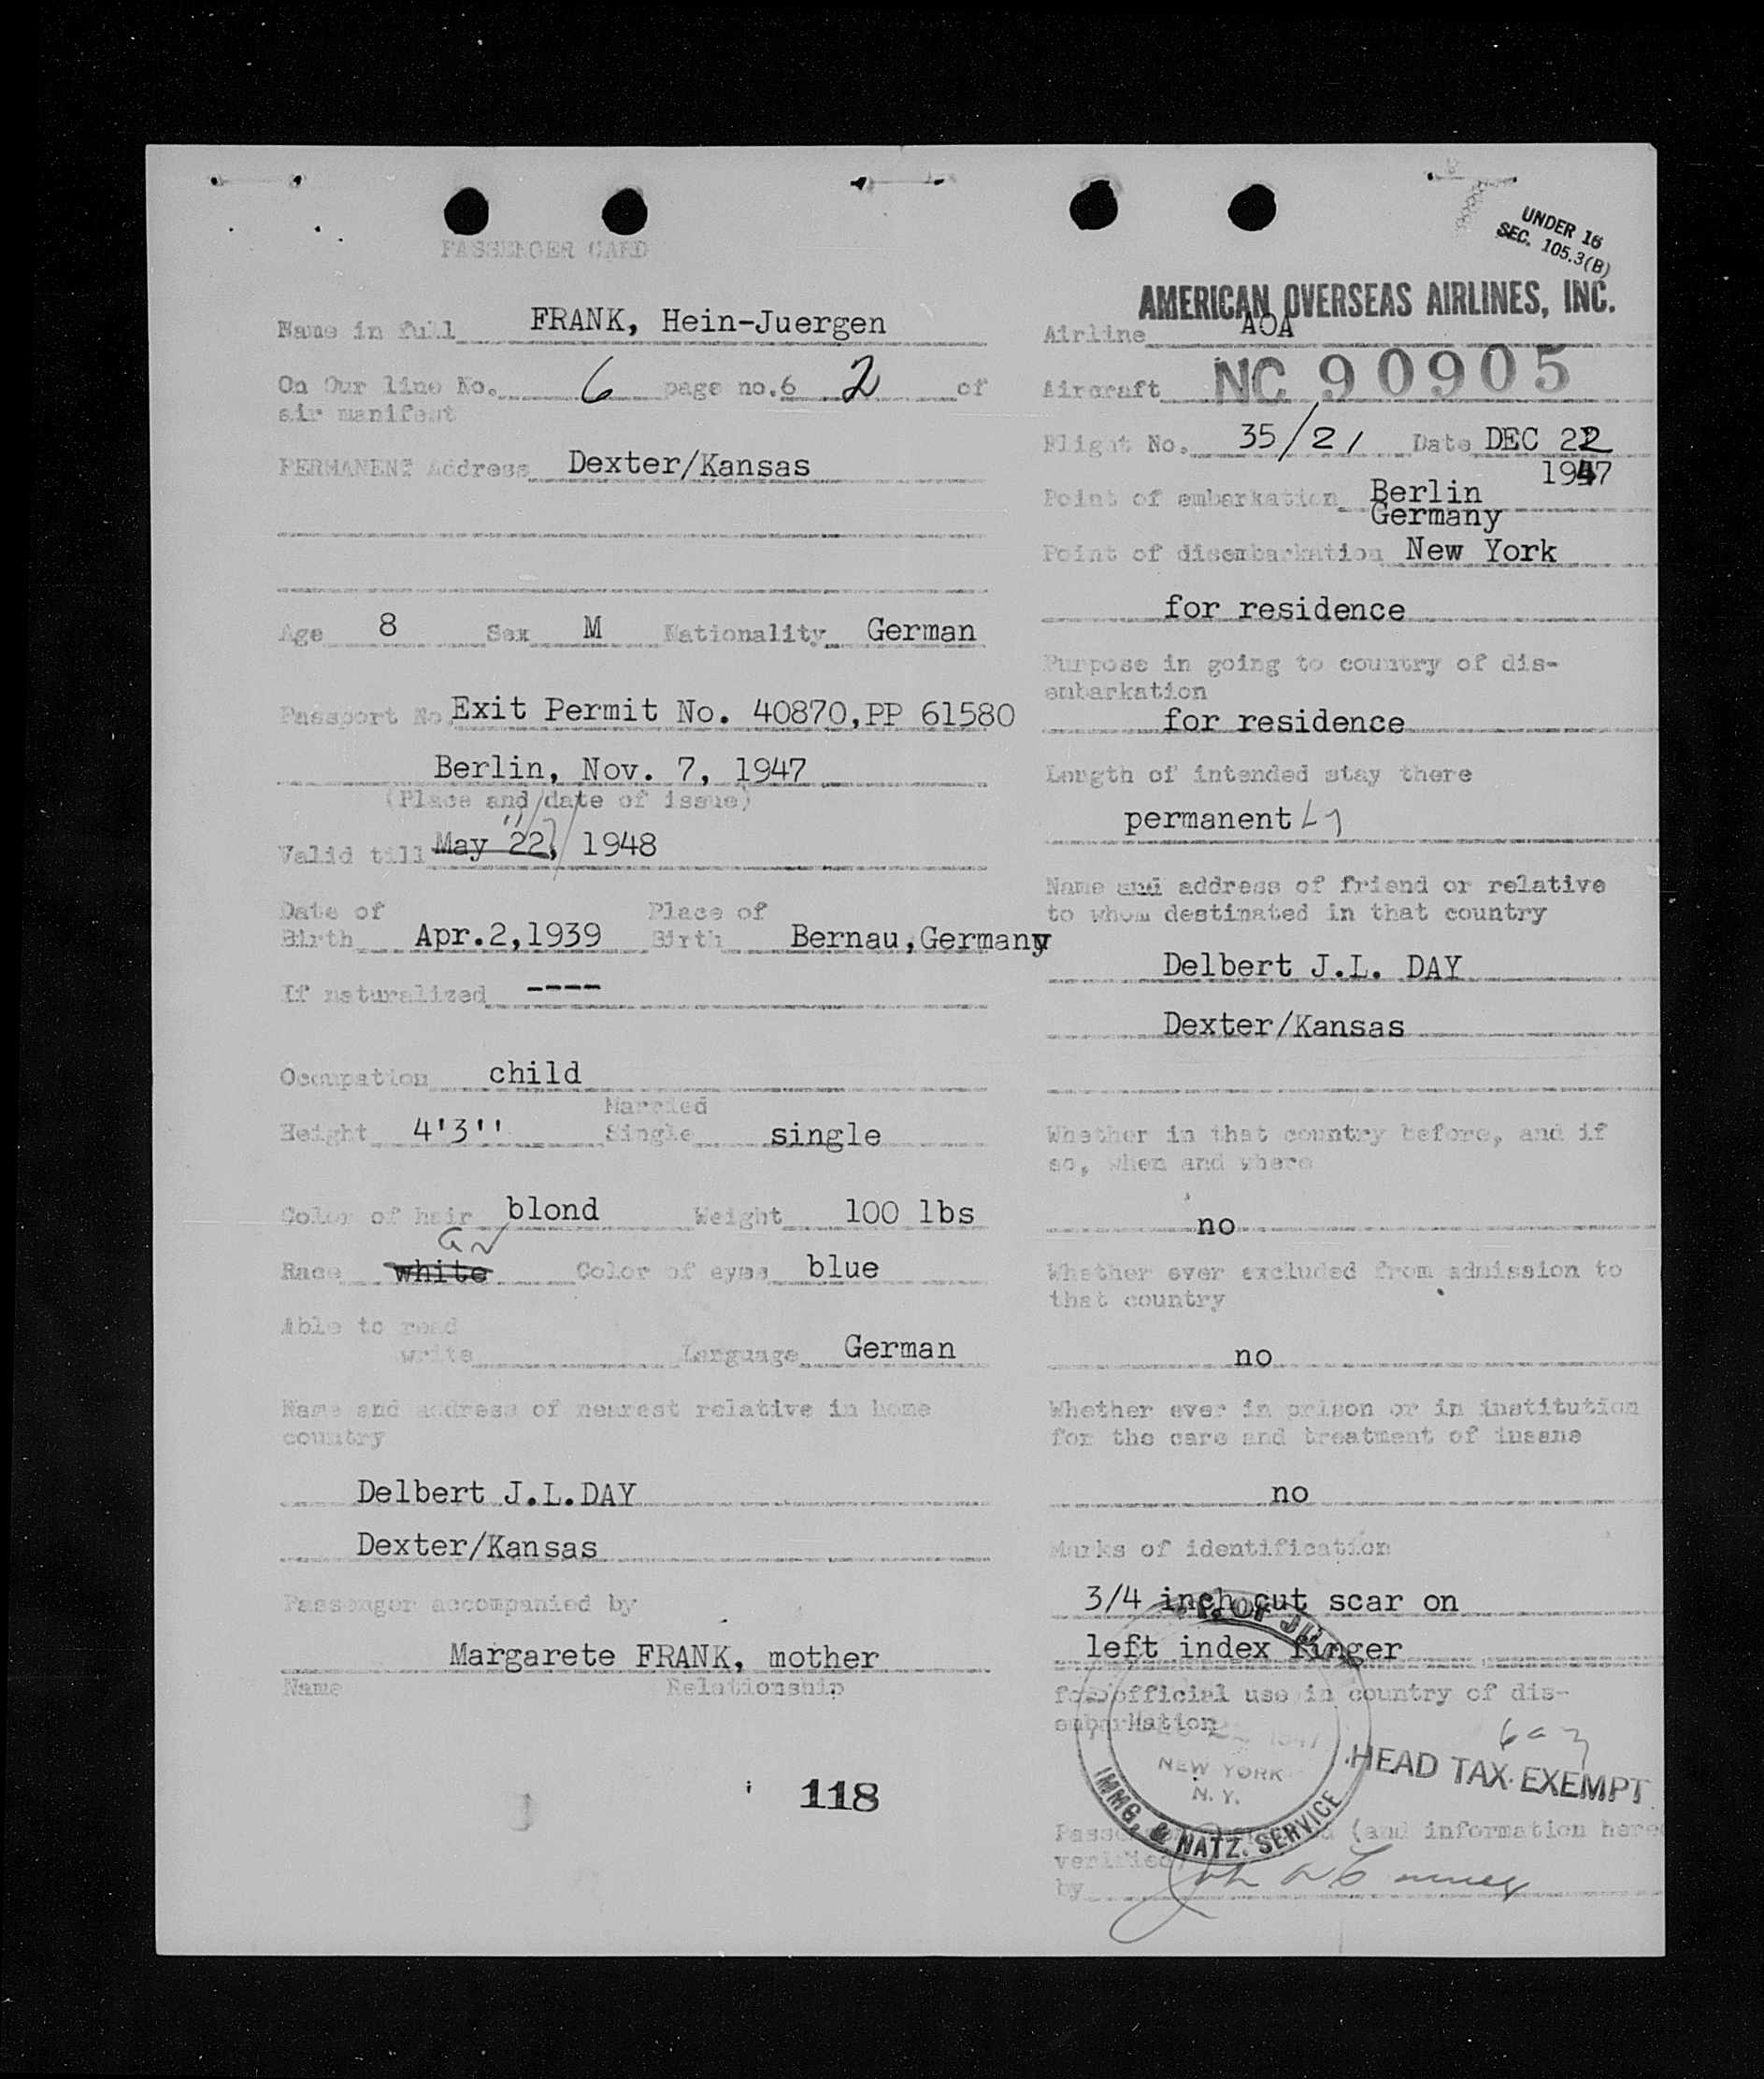 UNDER 16
SEC. 105.3(B)
PASSENGER CARD
Name in full FRANK, Hein-Juergen
On Our line No. 6 page no.6 2 of
air manifest
PERMANENT Address Dexter/Kansas
Age 8 Sex M Nationality German
Passport No. Exit Permit No. 40870,PP 61580
Berlin, Nov. 7, 1947
(Place and date of issue)
11/7/
Valid till May 22, 1948
Date of Place of
Birth Apr.2,1939 Birth Bernau,Germany
If naturalized ----
Occupation child
Married
Height 4'3'' Single single
Color of hair blond Weight 100 lbs
Race white Color of eyes blue
Able to read
write Language German
Name and address of nearest relative in home
country
Delbert J.L.DAY
Dexter/Kansas
Passenger accompanied by
Margarete FRANK, mother
Name Relationship
118
AMERICAN OVERSEAS AIRLINES, INC.
Airline AOA
Aircraft NC 90905
Flight No. 35/21 Date DEC 22
1947
Point of embarkation Berlin
Germany
Point of disembarkation New York
for residence
Purpose in going to country of dis-
embarkation
for residence
Length of intended stay there
permanent
Name and address of friend or relative
to whom destinated in that country
Delbert J.L. DAY
Dexter/Kansas
Whether in that country before, and if
so, when and where
no
Whether ever excluded from admission to
that country
no
Whether ever in prison or in institution
for the care and treatment of insane
no
Marks of identification
3/4 inch cut scar on
left index finger
for official use in country of dis-
embarkation
1947
NEW YORK
N. Y.
IMMG. & NATZ. SERVICE
HEAD TAX EXEMPT
(and information here
verified)
by